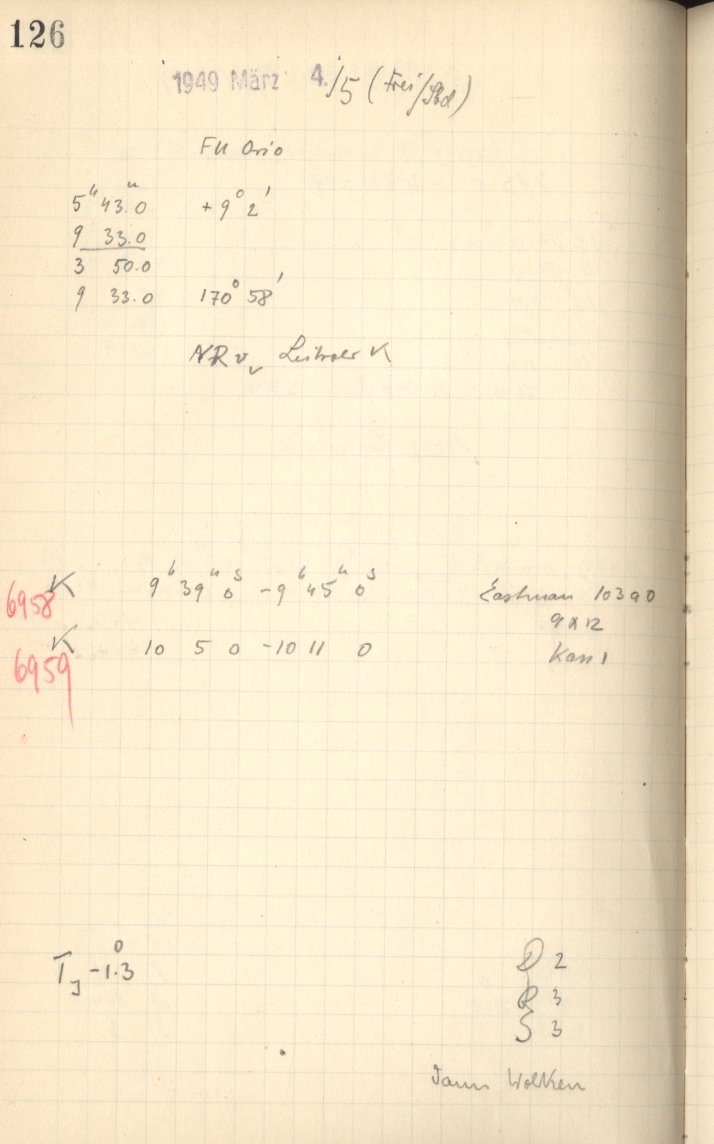 126
1949 März 4./5 (Frei/Sbd)
FU Orio
5ʰ 43.ᵐ0 +9° 2'
9 33.0
3 50.0
9 33.0 170° 58'
NR v, Leitrohr K
6958 K 9ʰ 39ᵐ 0ˢ -9ʰ 45ᵐ 0ˢ Eastman 103a0
9 x 12
6959 K 10 5 0 -10 11 0 Kass 1
T_J -1.°3
D 2
R 3
S 3
dann Wolken